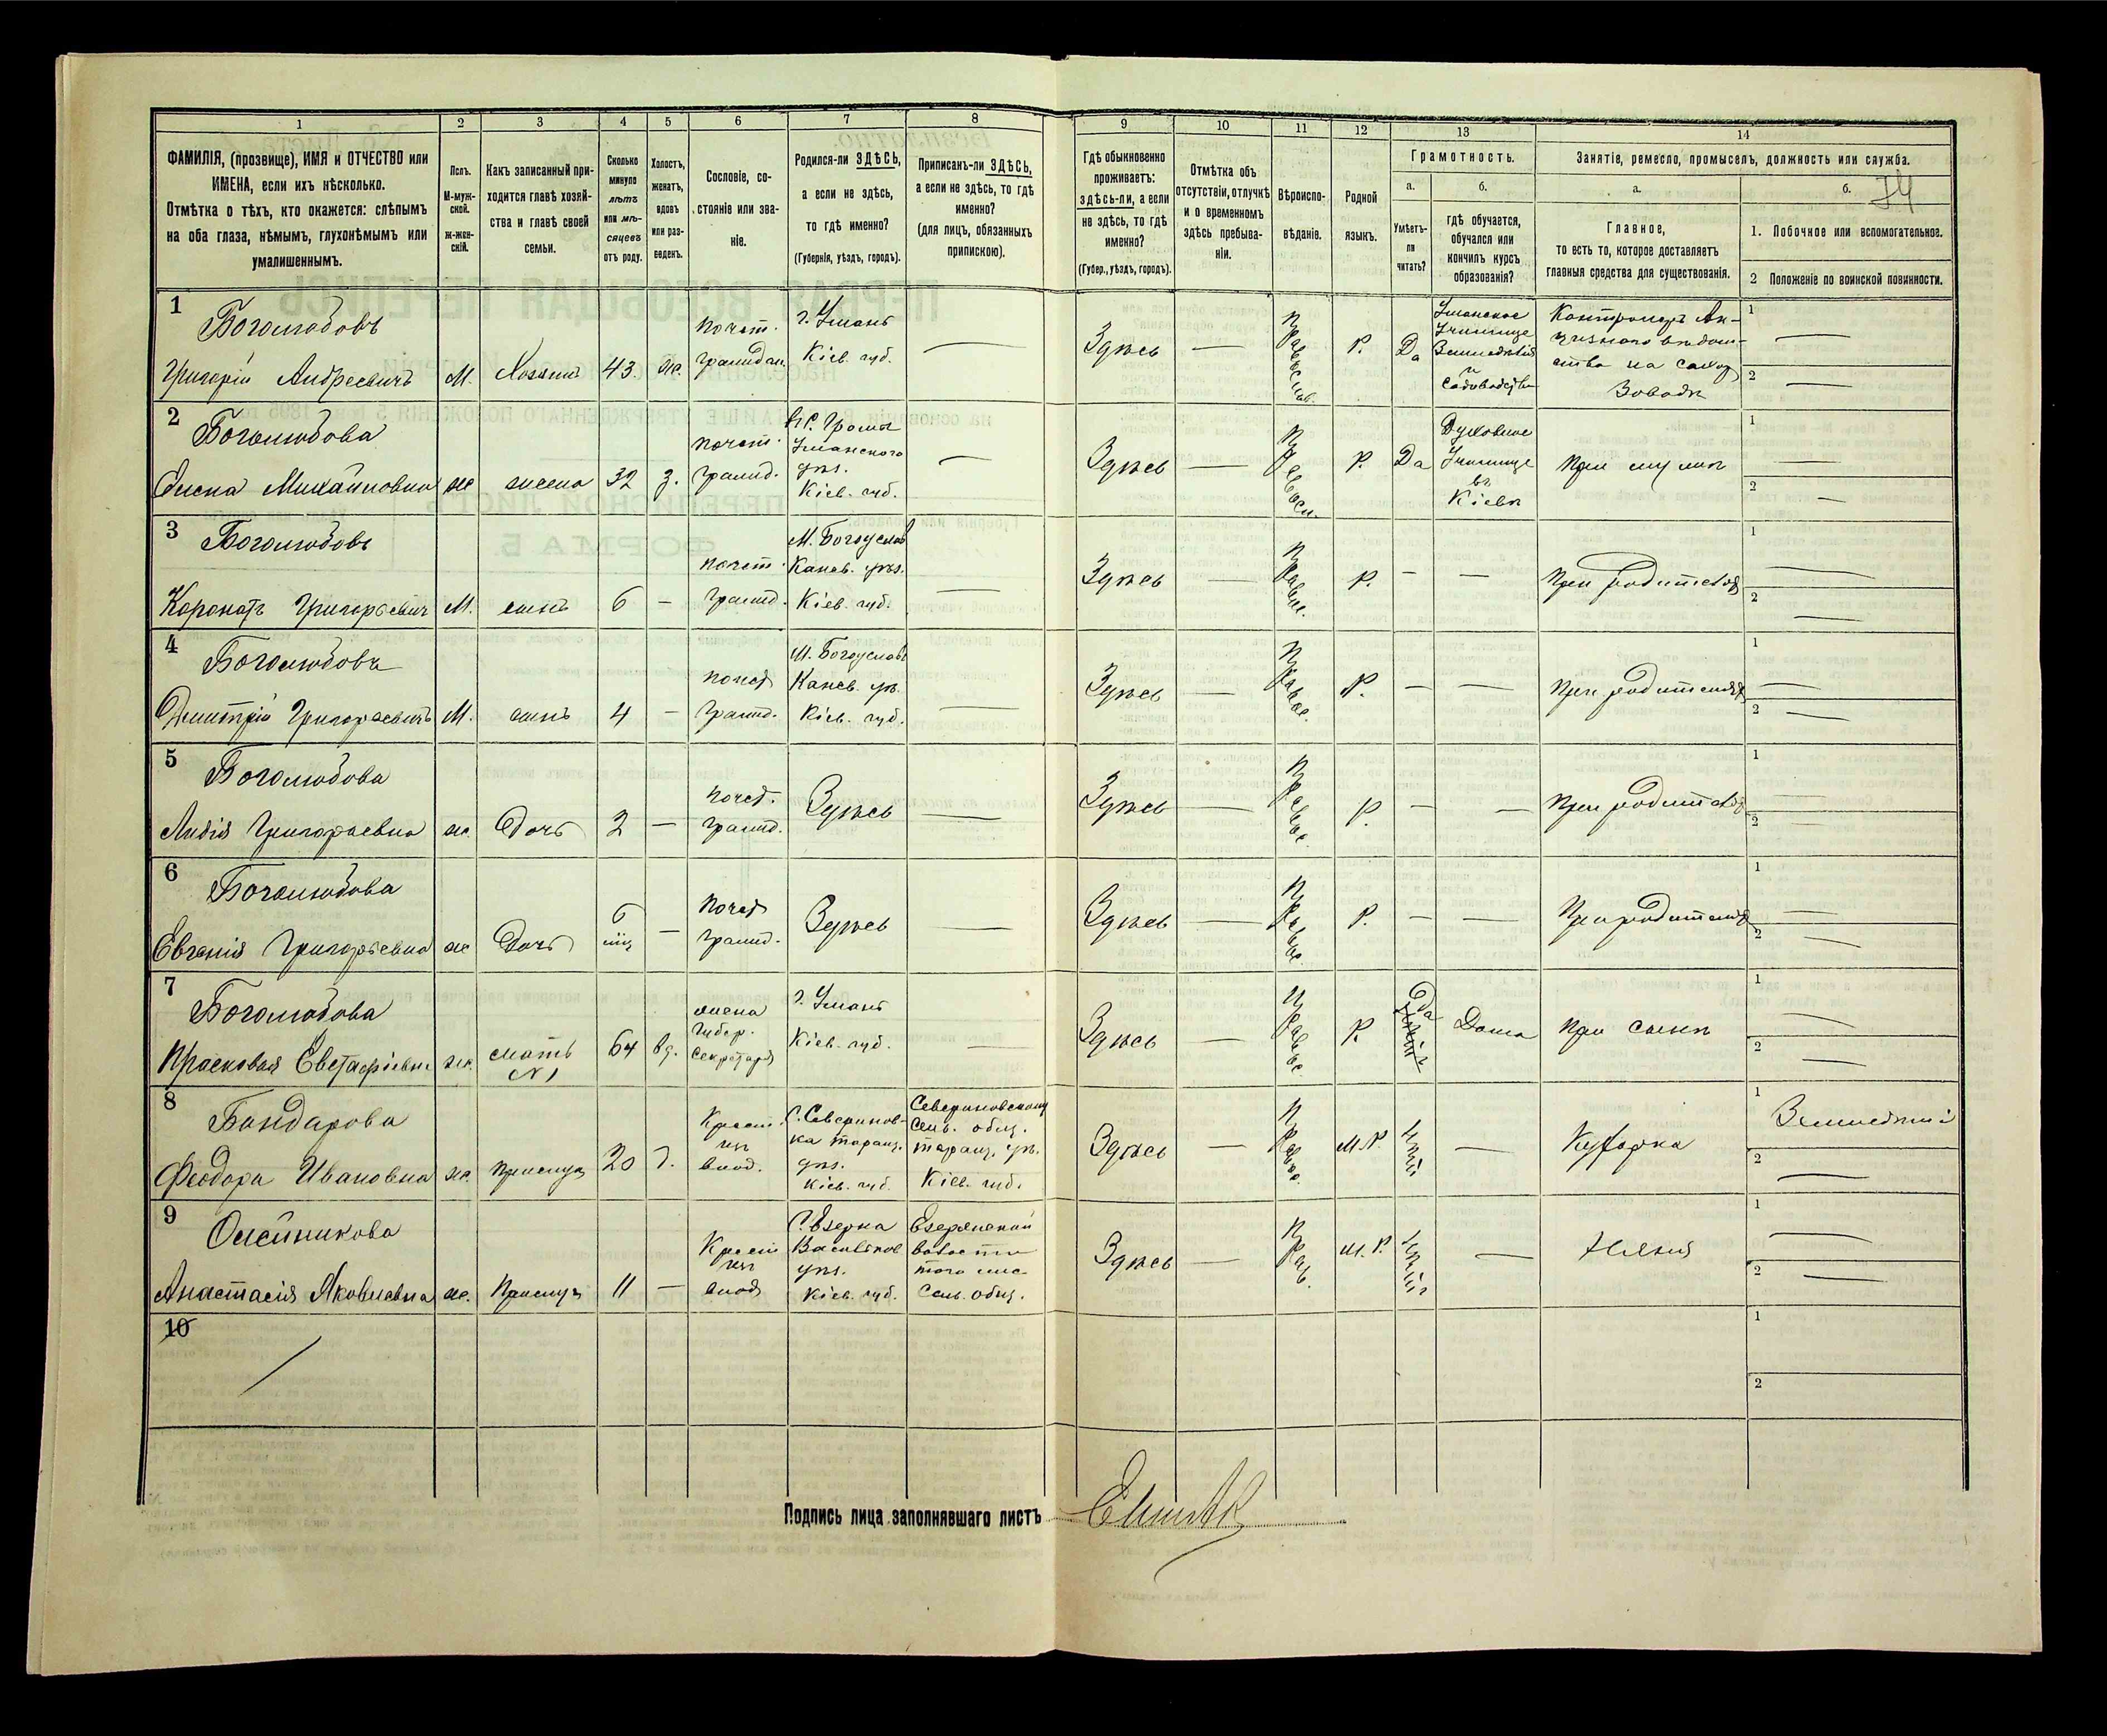 1 2 3 4 5 6 7 8 9 10 11 12 13 14
ФАМИЛІЯ, (прозвище), ИМЯ и ОТЧЕСТВО или
ИМЕНА, если ихъ нѣсколько.
Отмѣтка о тѣхъ, кто окажется: слѣпымъ
на оба глаза, нѣмымъ, глухонѣмымъ или
умалишеннымъ.
Полъ.
М-муж-
ской.
Ж-жен-
скій.
Какъ записанный при-
ходится главѣ хозяй-
ства и главѣ своей
семьи.
Сколько
минуло
лѣтъ
или мѣ-
сяцевъ
отъ роду.
Холостъ,
женатъ,
вдовъ
или раз-
веденъ.
Сословіе, со-
стояніе или зва-
ніе.
Родился-ли ЗДѢСЬ,
а если не здѣсь,
то гдѣ именно?
(Губернія, уѣздъ, городъ).
Приписанъ-ли ЗДѢСЬ,
а если не здѣсь, то гдѣ
именно?
(для лицъ, обязанныхъ
припискою).
Гдѣ обыкновенно
проживаетъ:
здѣсь-ли, а если
не здѣсь, то гдѣ
именно?
(Губер., уѣздъ, городъ).
Отмѣтка объ
отсутствіи, отлучкѣ
и о временномъ
здѣсь пребыва-
ніи.
Вѣроиспо-
вѣданіе.
Родной
языкъ.
Грамотность.
а.
Умѣетъ-
ли
читать?
б.
гдѣ обучается,
обучался или
кончилъ курсъ
образованія?
Занятіе, ремесло, промыселъ, должность или служба.
а.
Главное,
то есть то, которое доставляетъ
главныя средства для существованія.
б.
74
1. Побочное или вспомогательное.
2 Положеніе по воинской повинности.
1
Боголюбовъ
Григорій Андреевичъ
М.
Хозяинъ
43
ж.
почет.
граждан.
г. Умань
Кіев. губ.
Здѣсь
Православ.
Р.
Да
Уманское
Училище
Земледѣлія
и
садоводства
Контролеръ Ак-
цизнаго вѣдом-
ства на сахар
Заводѣ
1
2
2
Боголюбова
Елена Михайловна
ж
жена
32
з.
почет.
гражд.
въ с. Громы
Уманского
уѣз.
Кіев. губ.
Здѣсь
Правосл.
Р.
Да
Духовное
Училище
въ
Кіевѣ
при мужѣ
1
2
3
Боголюбовъ
Коронатъ Григорьевич
М.
сынъ
6
почет.
гражд.
М. Богуслав
Канев. уѣз.
Кіев. губ.
Здѣсь
Правос.
Р.
при родителях
1
2
4
Боголюбовъ
Дмитрій Григорьевичъ
М.
сынъ
4
почет
гражд.
М. Богуслав
Канев. уѣ.
Кіев. губ.
Здѣсь
Правос.
Р.
при родителях
1
2
5
Боголюбова
Лидія Григорьевна
ж.
Дочь
2
почет.
гражд.
Здѣсь
Здѣсь
Правос.
Р.
при родителях
1
2
6
Боголюбова
Евгенія Григорьевна
ж
Дочь
6
мц
почет
гражд.
Здѣсь
Здѣсь
Правос.
Р.
При родителях
1
2
7
Боголюбова
Прасковья Евстафіевна
ж.
мать
№ 1
64
вд.
жена
Губер.
Секретаря
г. Умань
Кіев. губ.
Здѣсь
Правос.
Р.
Да
Дома
при сынѣ
1
2
8
Бондарова
Феодора Ивановна
ж.
прислуга
20
Крест
изъ
влад.
С. Севериновка
таращ.
уѣз.
Кіев. губ.
Севериновскому
Сель. общ.
таращ. уѣ.
Кіев. губ.
Здѣсь
Правос.
М. Р.
Нѣтъ
Кухарка
1
Земледѣліе
2
9
Олейникова
Анастасія Яковлевна
ж.
Прислуга
11
Крест
изъ
влад
С. Езерна
Васильков
уѣз.
Кіев. губ.
Езерянской
волости
того же
Сель. общ.
Здѣсь
Прав.
М. Р.
Нѣтъ
Няня
1
2
10
1
2
Подпись лица заполнявшаго листъ